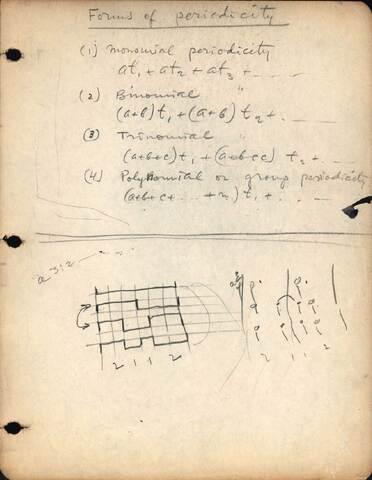 Forms of periodicity
(1) monomial periodicity
at₁ + at₂ + at₃ + - - - -
(2) Binomial "
(a+b)t₁ + (a+b) t₂ + . - - -
(3) Trinomial "
(a+b+c)t₁ + (a+b+c) t₂ + - -
(4) Polynomial or group periodicity
(a+b+c+ . . . . + n) t₁ + . - -
a 3÷2
2 1 1 2
2 1 1 2